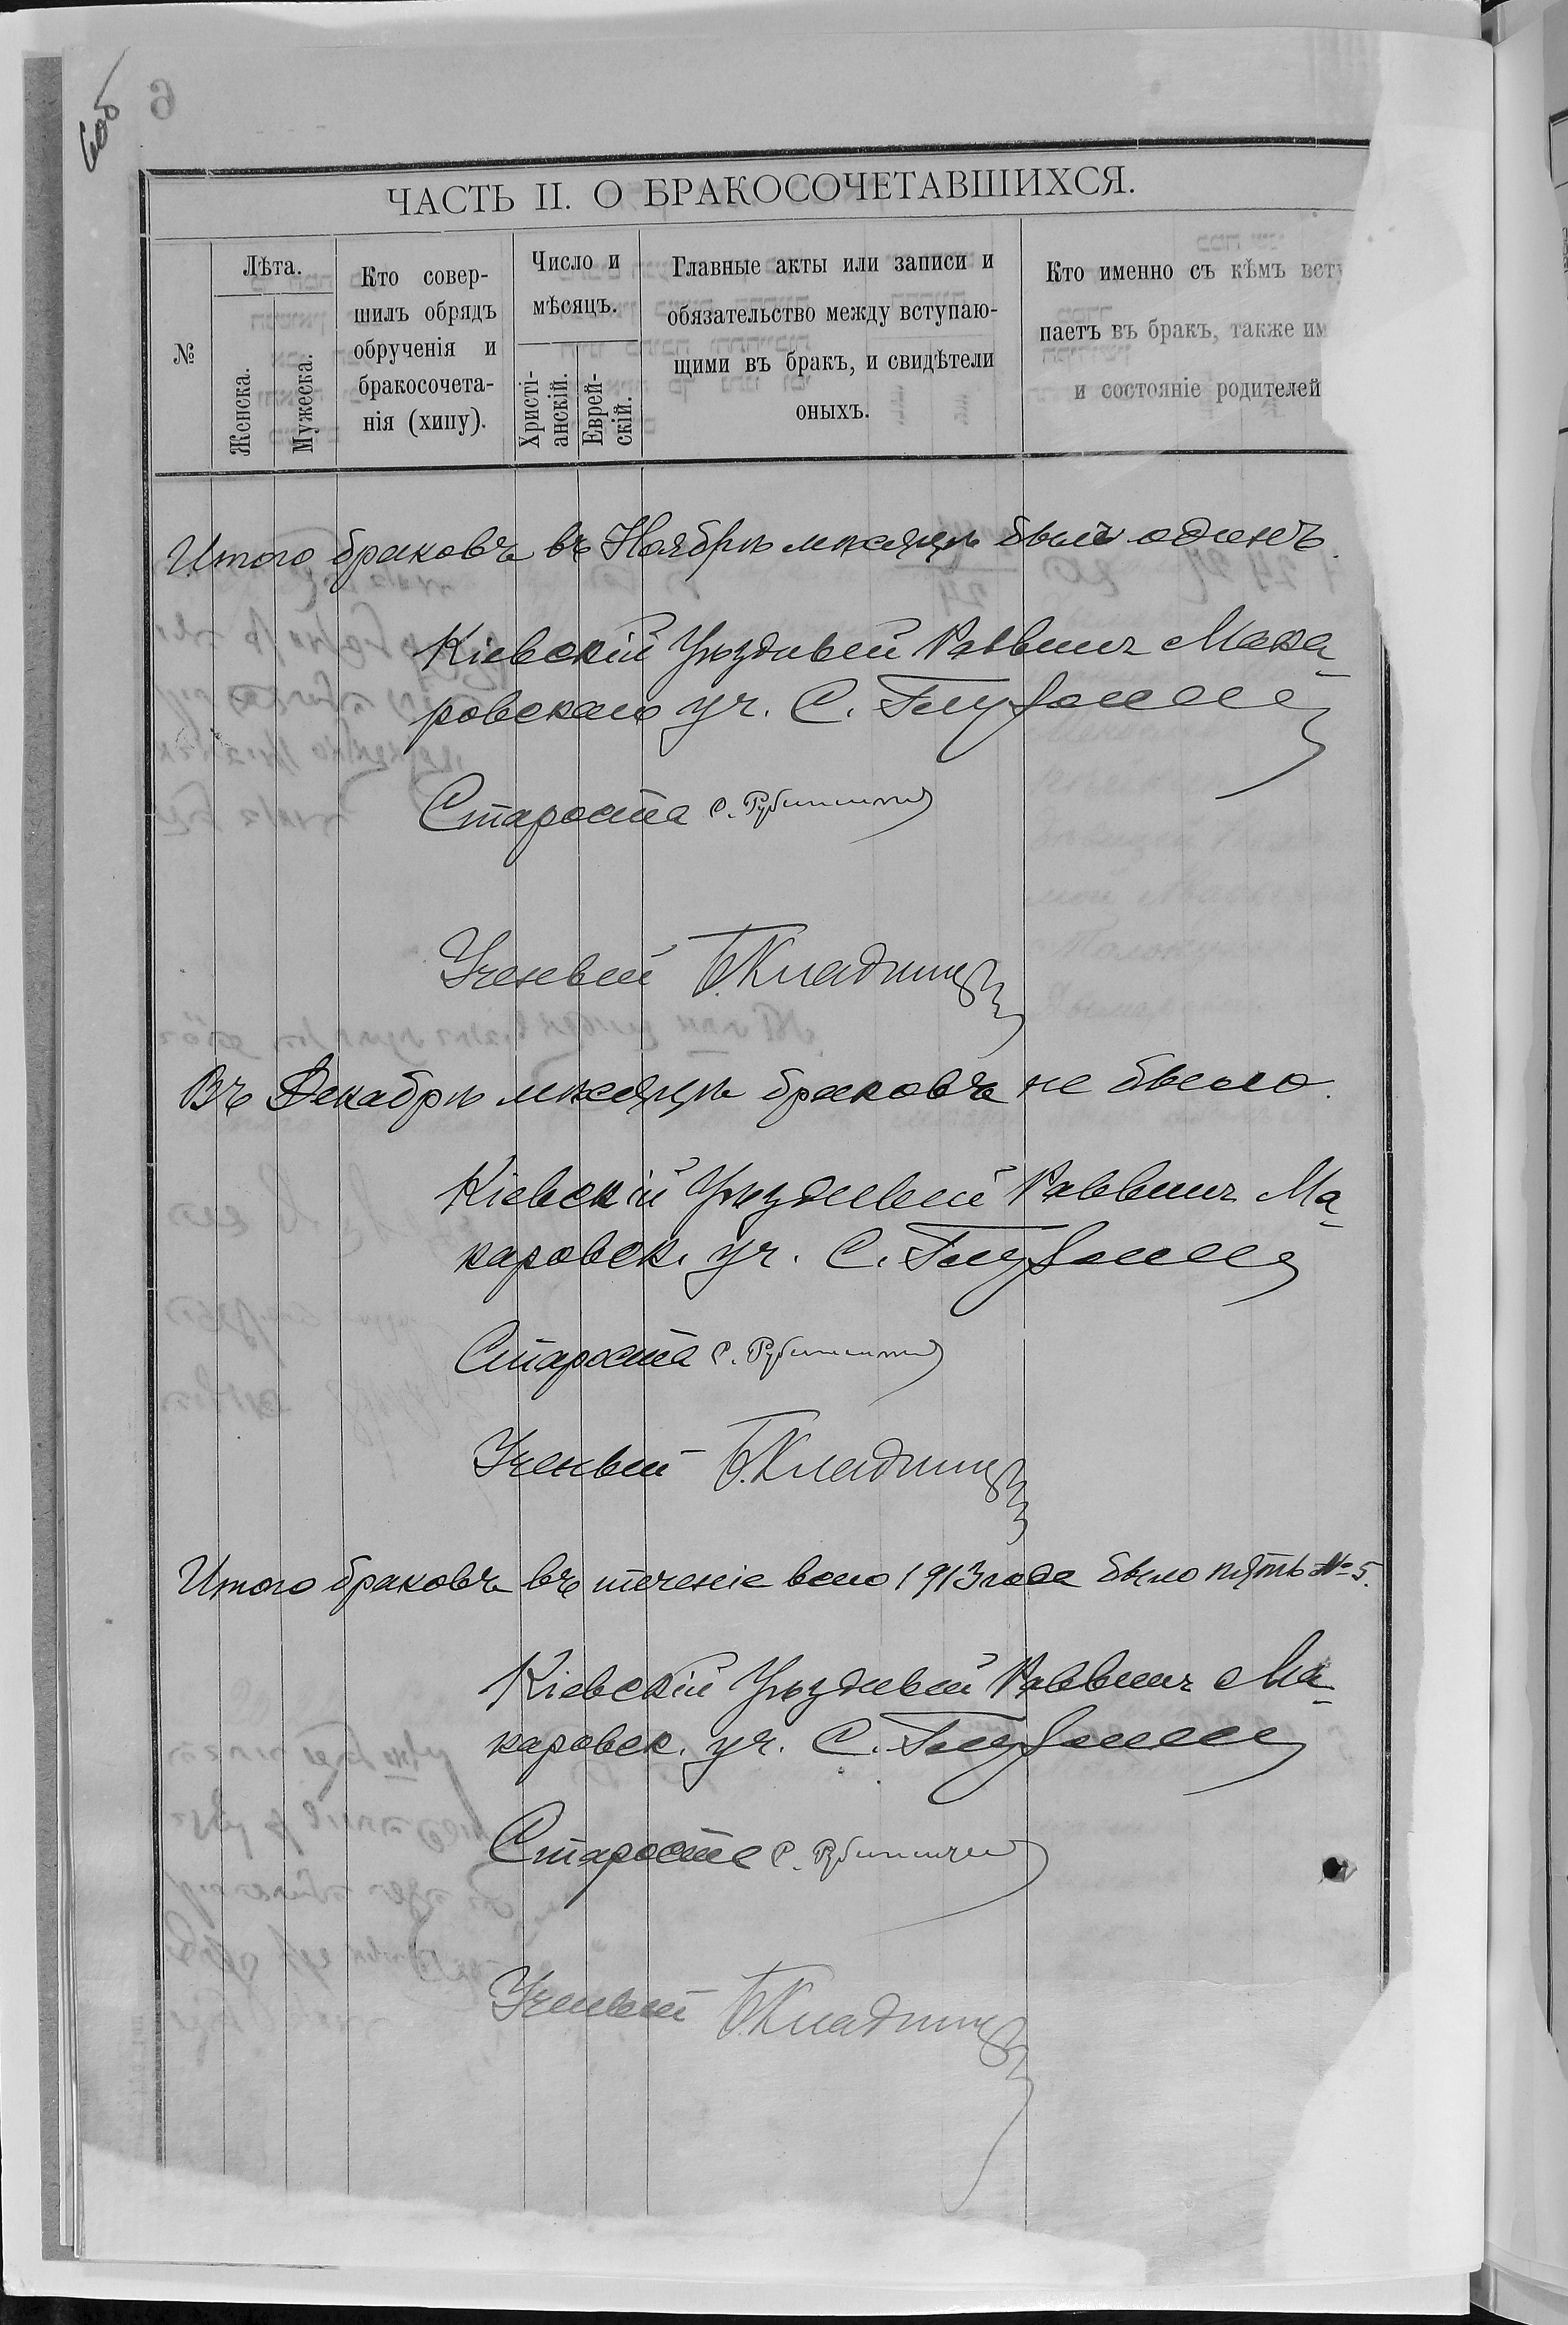 6об
ЧАСТЬ II. О БРАКОСОЧЕТАВШИХСЯ.
№
Лѣта.
Женска.
Мужеска.
Кто совер-
шилъ обрядъ
обрученія и
бракосочета-
нія (хипу).
Число и
мѣсяцъ.
Христі-
анскій.
Еврей-
скій.
Главные акты или записи и
обязательство между вступаю-
щими въ бракъ, и свидѣтели
оныхъ.
Кто именно съ кѣмъ всту
паетъ въ бракъ, также им
и состояніе родителей
Итого браковъ въ Ноябрѣ мѣсяцѣ былъ одинъ.
Кіевскій Уѣздный Раввинъ Мака-
ровскаго уч. С.
Староста С.
Ученый Б.
Въ Декабрѣ мѣсяцѣ браковъ не было.
Кіевскій Уѣздный Раввинъ Ма-
каровск. уч. С.
Староста С.
Ученый Б.
Итого браковъ въ теченіе всего 1913 года было пять № 5.
Кіевскій Уѣздный Раввинъ Ма-
каровск. уч. С.
Староста С.
Ученый Б.